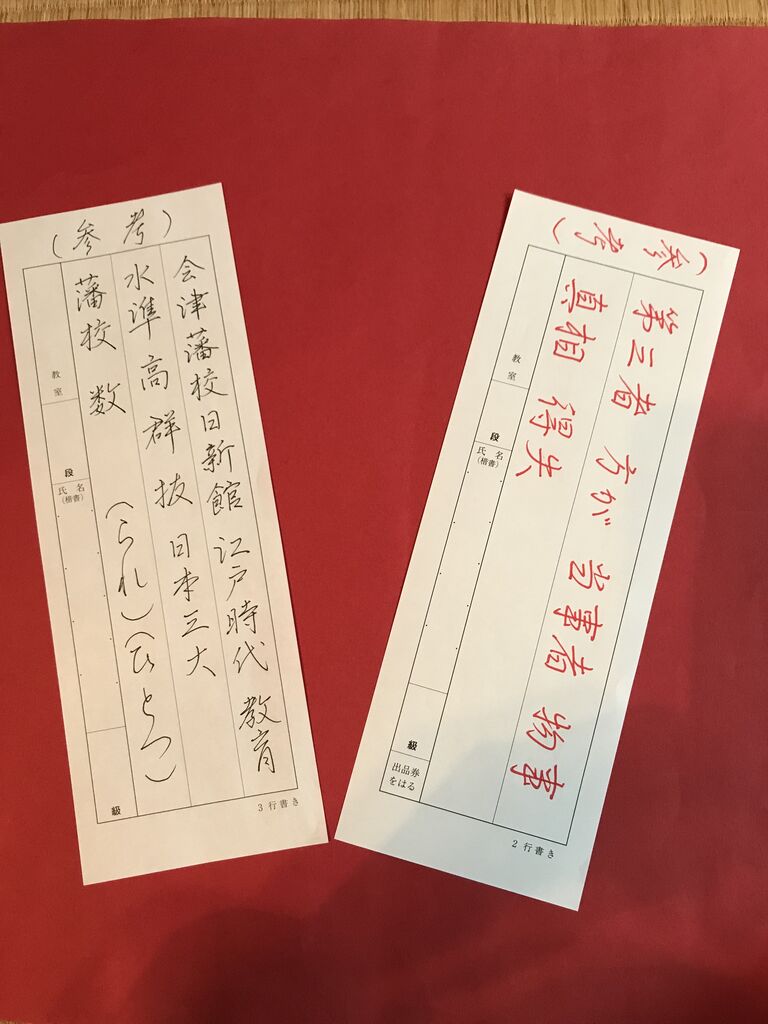 (参考)
会津藩校日新館 江戸時代 教育
水準高群抜 日本三大
藩校 数 (られ)(ひとつ)
教室
段
氏名
(楷書)
級
3行書き
(参考)
第三者 方が 当事者 物事
真相 得失
教室
段
氏名
(楷書)
級
出品券
をはる
2行書き